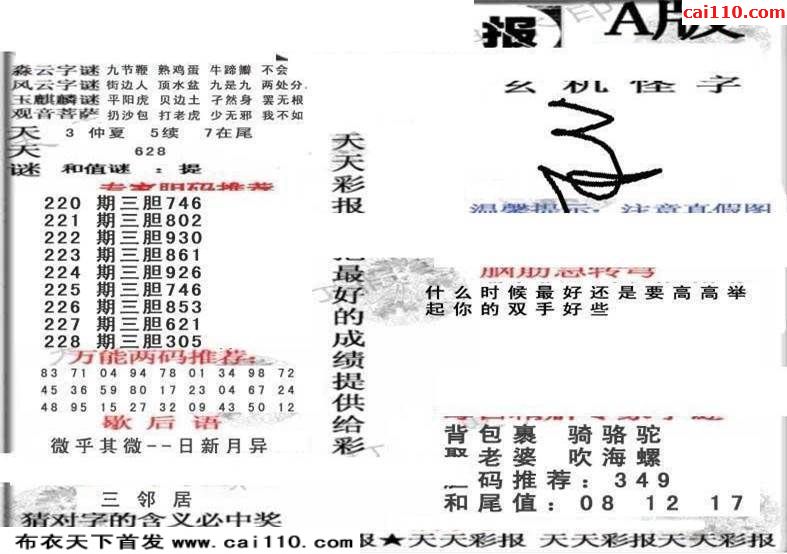 cai110.com
报】 A版
森云字谜 九节鞭 熟鸡蛋 牛蹄瓣 不会
风云字谜 街边人 顶水盆 九是九 两处分.
玉麒麟谜 平阳虎 贝边土 孑然身 罢无根
观音菩萨 扔沙包 打老虎 少无邪 我不如
天 3 仲夏 5续 7在尾
天 628
谜 和值谜 : 提
专家胆码推荐
220 期三胆746
221 期三胆802
222 期三胆930
223 期三胆861
224 期三胆926
225 期三胆746
226 期三胆853
227 期三胆621
228 期三胆305
万能两码推荐:
83 71 04 94 78 01 34 98 72
45 36 59 80 17 23 04 67 24
48 95 15 27 32 09 43 50 12
歇后语
微乎其微--日新月异
三邻居
猜对字的含义必中奖
布衣天下首发 www.cai110.com
天天彩报
把最好的成绩提供给彩
玄机怪字
温馨提示: 注意真假图
脑筋急转弯
什么时候最好还是要高高举
起你的双手好些
背包裹 骑骆驼
最老婆 吹海螺
码推荐: 349
和尾值: 08 12 17
报★天天彩报 天天彩报天天彩报